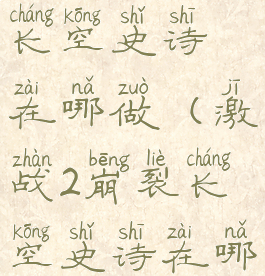 cháng kōng shǐ shī
长空史诗
zài nǎ zuò jī
在哪做（激
zhàn bēng liè cháng
战2崩裂长
kōng shǐ shī zài nǎ
空史诗在哪